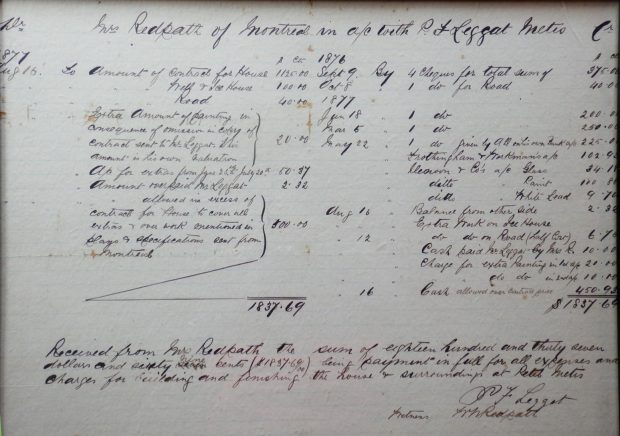 Dr Mrs Redpath of Montreal in a/c with P F Leggat Metis Cr
1877 $ cts 1876 $ cts
Aug 16 To Amount of contract for House 1125.00 Sept 9 By 4 Cheques for total sum of 375.00
Well & Ice House 100.00 Oct 8 " 1 do for Road 40.00
Road 40.00 1877
Extra Amount of painting in Jan 18 " 1 do 200.00
consequence of omission in copy of Mar 5 " 1 do 250.00
contract sent to Mr Leggat & his 20.00 May 22 " 1 do given by a/c 225.00
amount in his own valuation Frothingham & Workman's a/c 102.92
A/c for extras from July 20th 50.37 & Co's a/c Glass 34.18
Amount over paid Mr Leggat 2.32 ditto Paint
allowed in excess of ditto White Lead 9.70
contract for House to cover all Aug 16 Balance from other side 2.32
extras & work mentioned in 500.00 Extra Work on Ice House
plans & specifications sent from " 12 do do on Road (half Cost) 6.75
Montreal Cash paid Mr Leggat by Mrs R. 10.00
Charge for extra Painting in a/p 20.00
" do do in a/p 10.00
" 16 Cash allowed over contract price 450.93
1837.69 $1837.69
Received from Mrs Redpath the sum of eighteen hundred and thirty seven
dollars and sixty nine cents ($1837.69/00) being payment in full for all expenses and
charges for building and finishing the house & surroundings at Petit Metis
P F Leggat
Witness Redpath